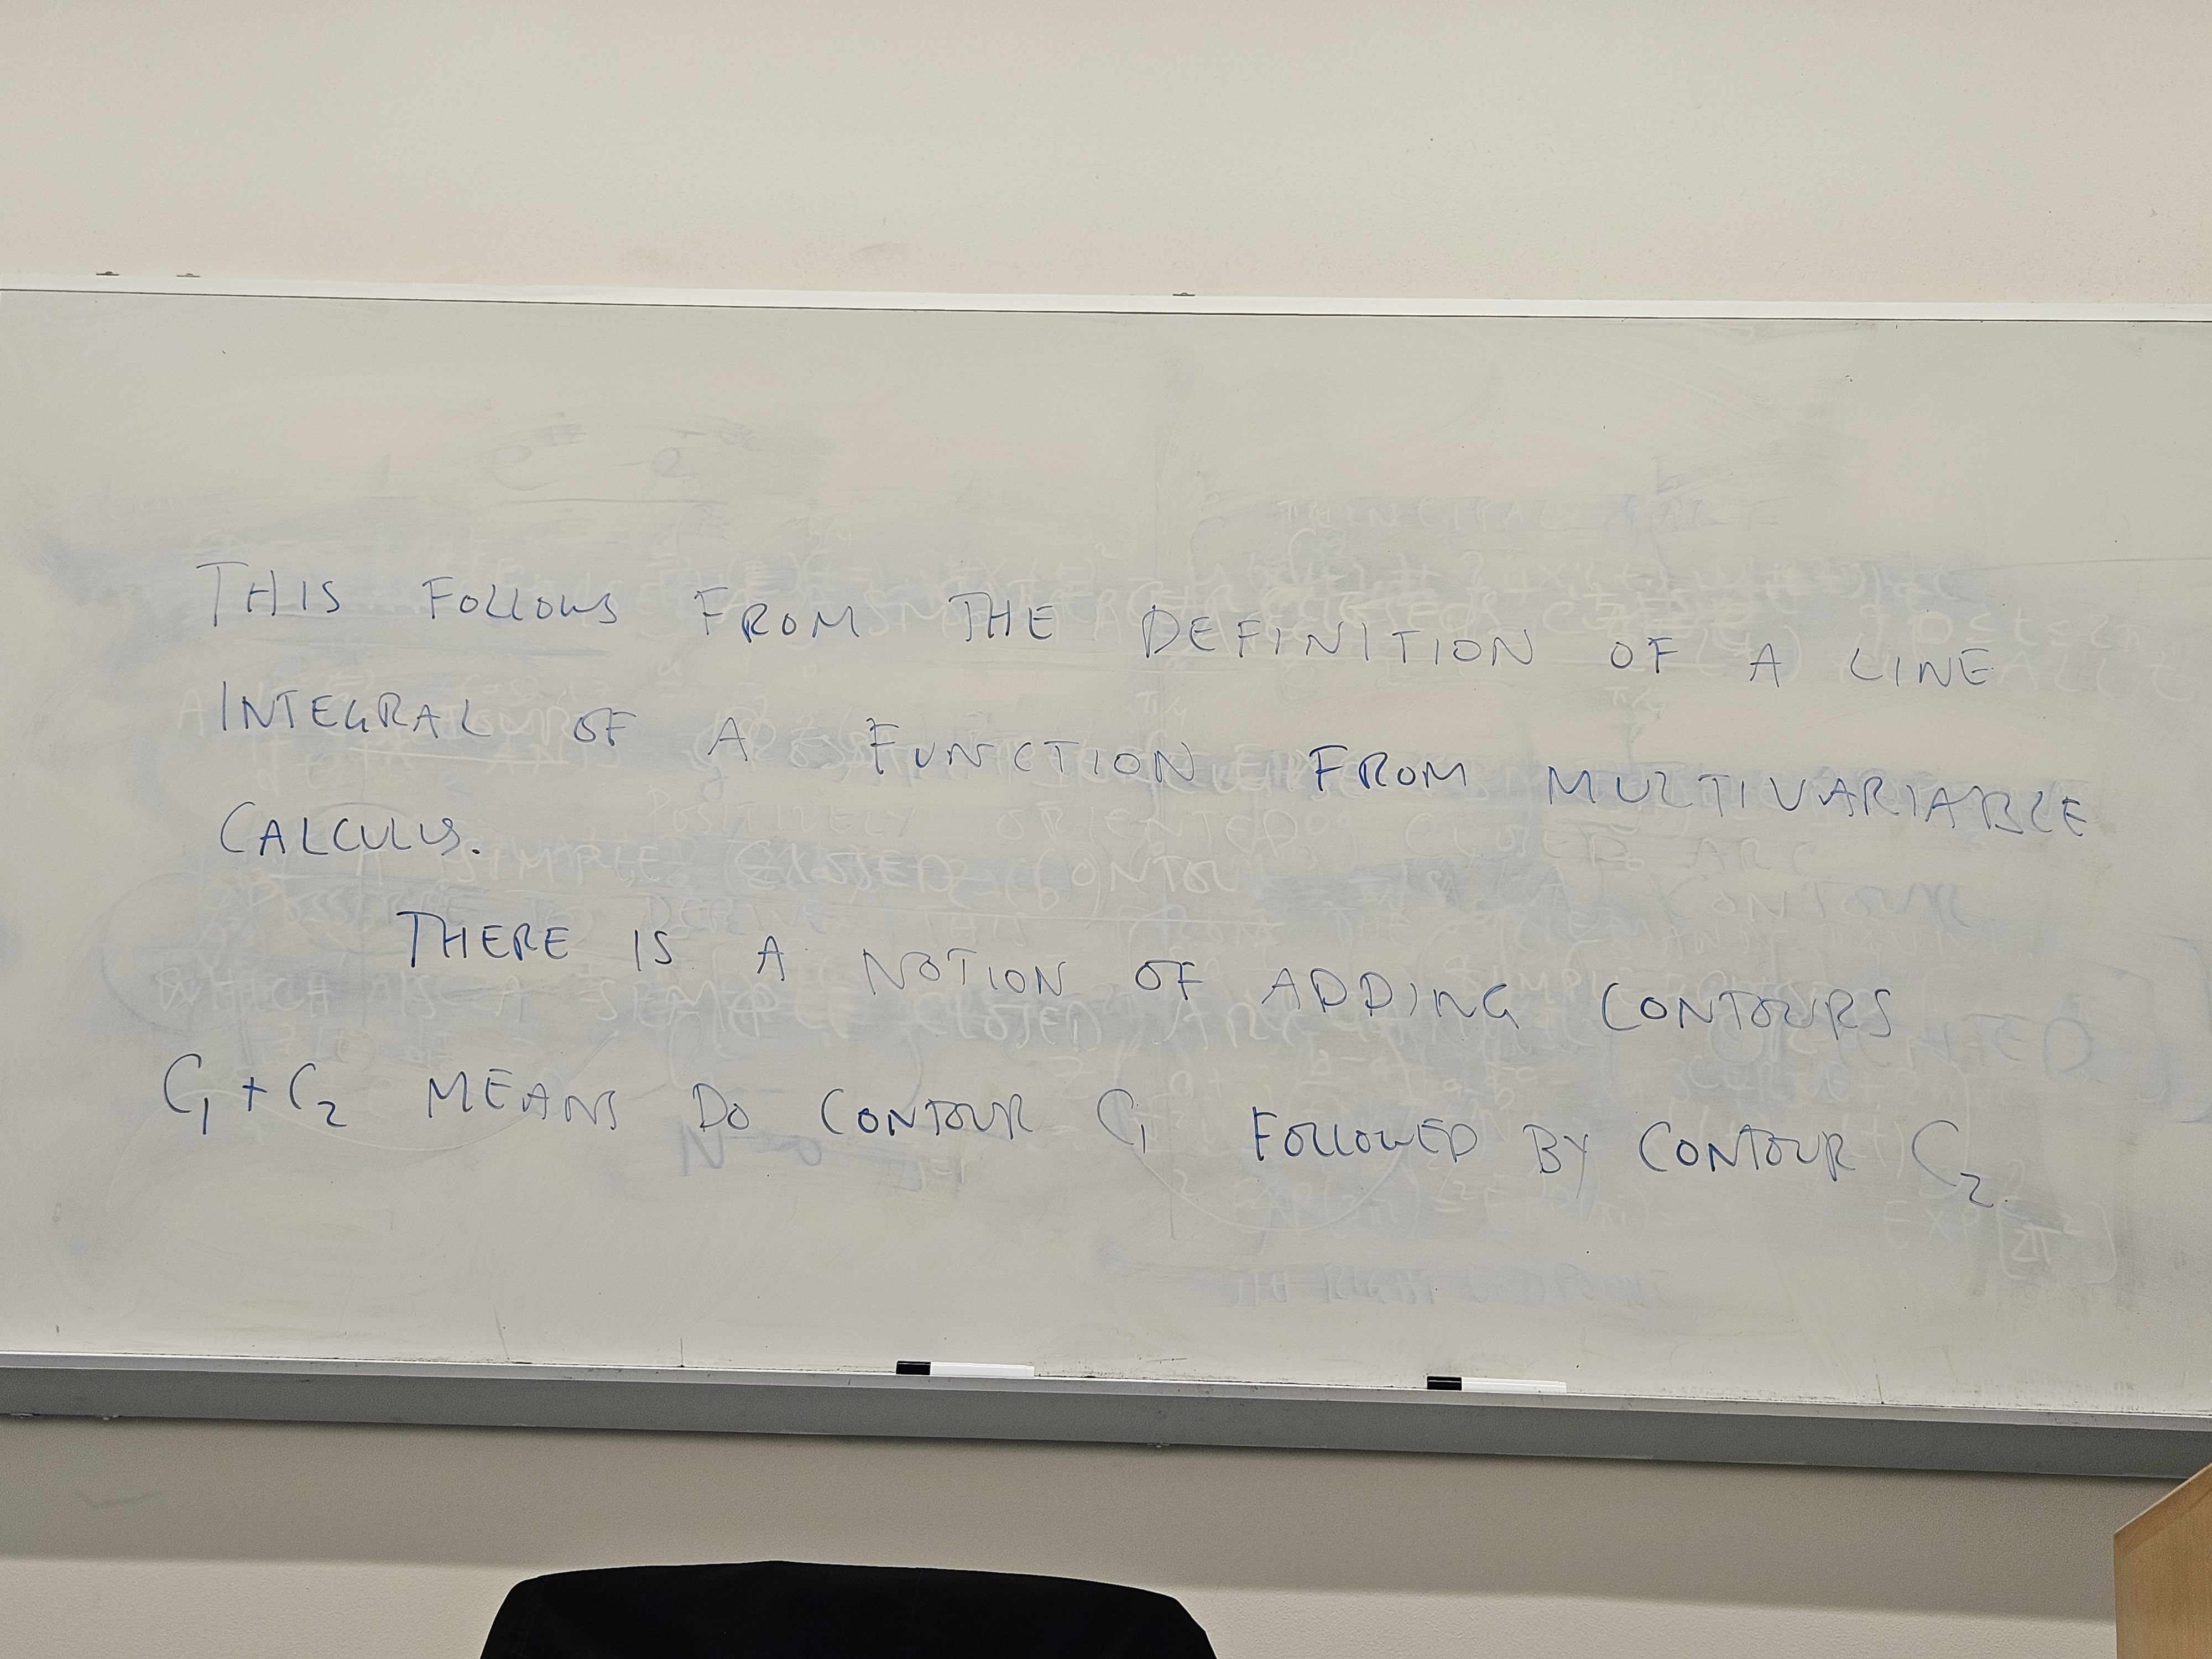 THIS FOLLOWS FROM THE DEFINITION OF A LINE
INTEGRAL OF A FUNCTION FROM MULTIVARIABLE
CALCULUS.
THERE IS A NOTION OF ADDING CONTOURS
C₁ + C₂ MEANS DO CONTOUR C₁ FOLLOWED BY CONTOUR C₂.